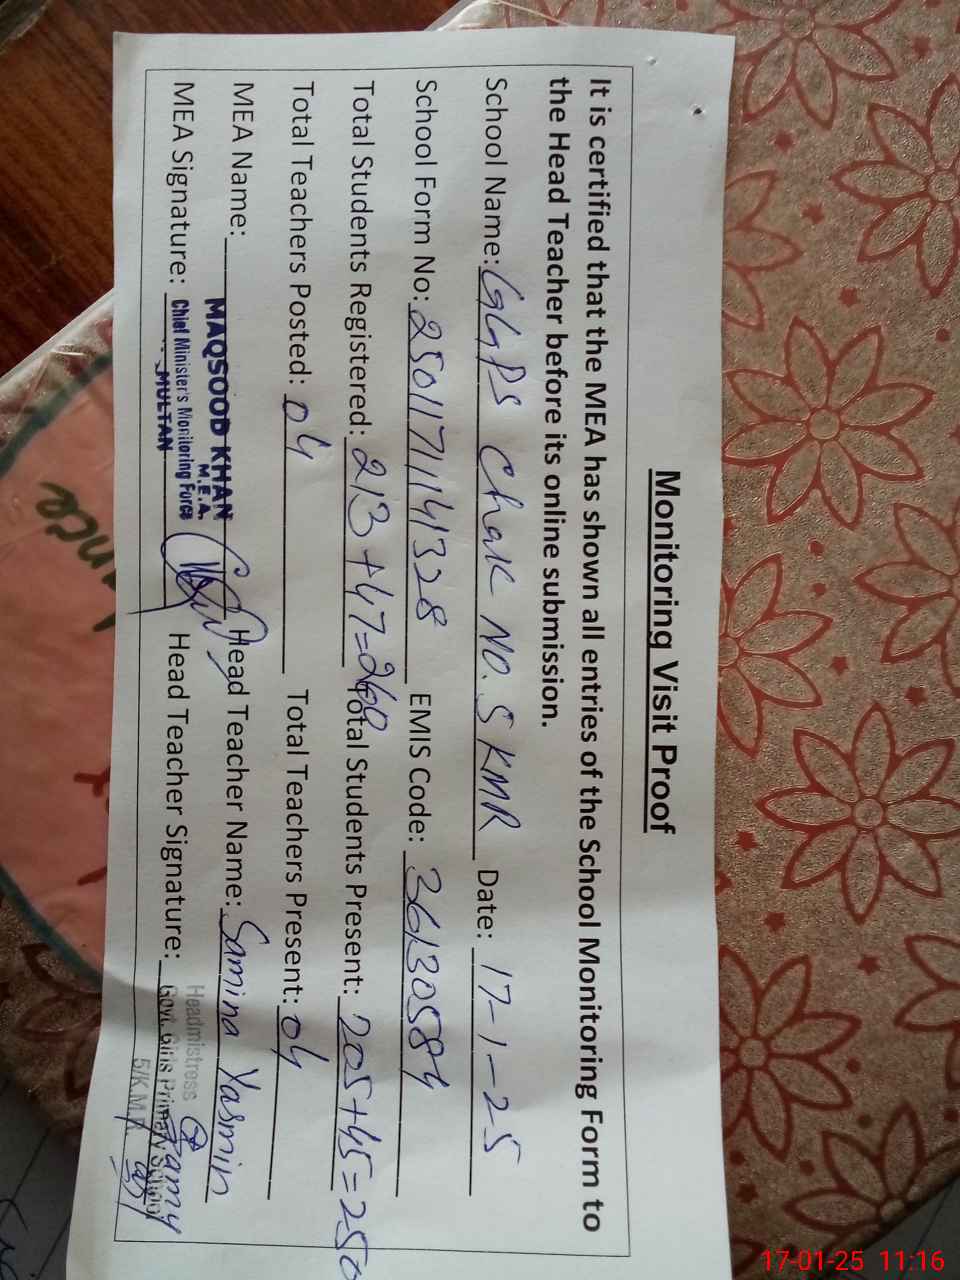 Monitoring Visit Proof
It is certified that the MEA has shown all entries of the School Monitoring Form to
the Head Teacher before its online submission.
School Name: GGPS Chak No. 5 KMR Date: 17-1-25
School Form No: 25011711414328 EMIS Code: 36130584
Total Students Registered: 213+47=260 Total Students Present: 205+45=250
Total Teachers Posted: 04 Total Teachers Present: 04
MEA Name: MAQSOOD KHAN Head Teacher Name: Samina Yasmin
M.E.A.
MEA Signature: Chief Minister's Monitoring Force Head Teacher Signature:
MULTAN
Headmistress
Govt. Girls Primary School
5/K.M.R
17-01-25 11:16